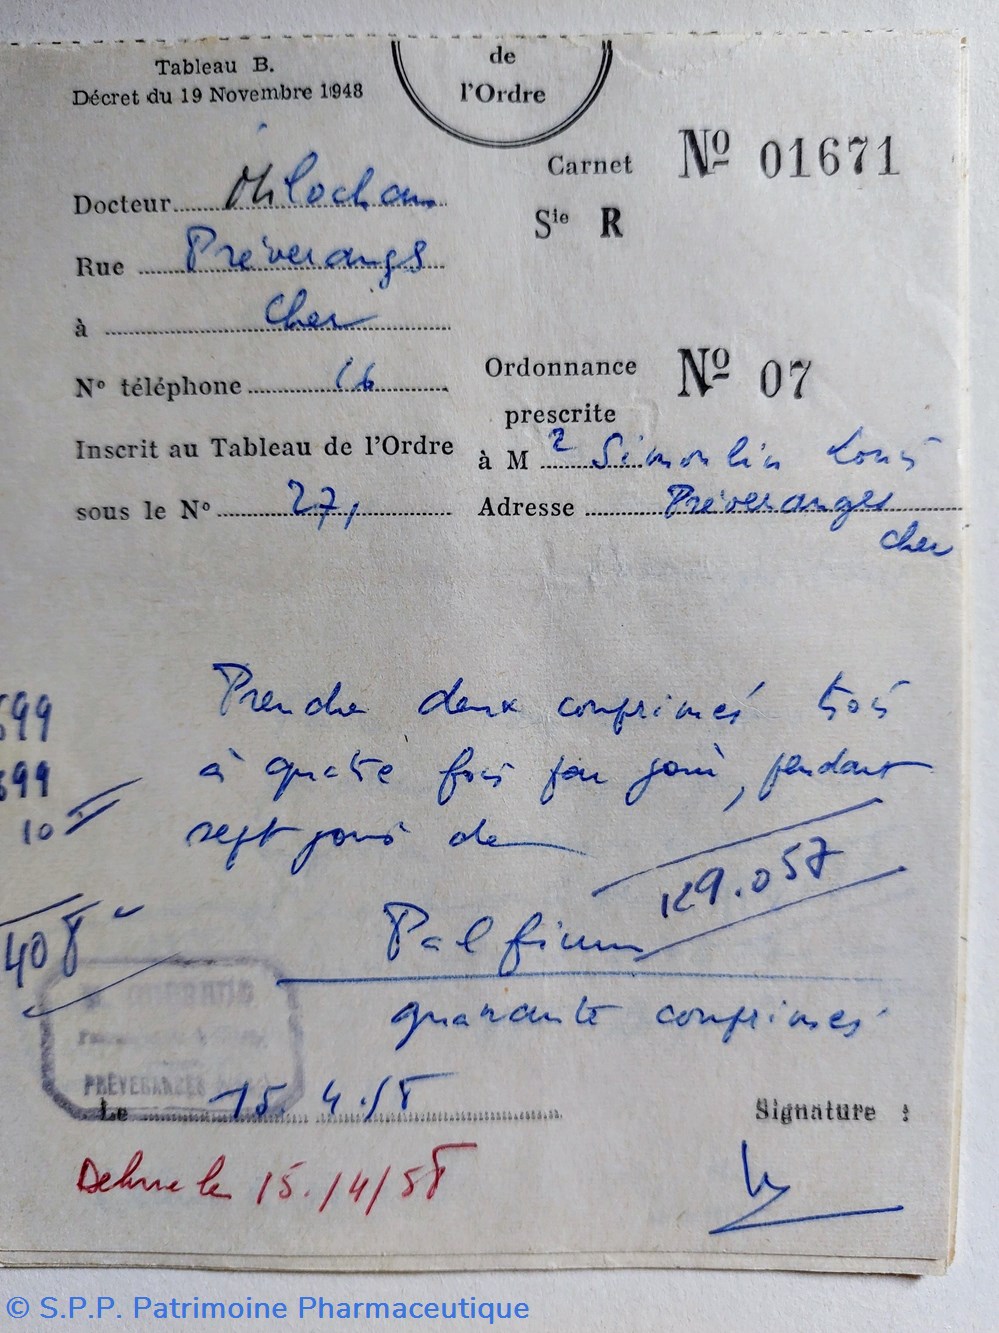 Tableau B.
Décret du 19 Novembre 1948
de
l'Ordre
Carnet Nº 01671
Sie R
Docteur
Rue Préveranges
à Cher
Nº téléphone 16
Inscrit au Tableau de l'Ordre
sous le Nº 27,
Ordonnance Nº 07
prescrite
à M Simonlin Louis
Adresse Préveranges
Cher
599
599
10
408
Prendre deux comprimés trois
à quatre fois par jour, pendant
sept jours de
129.057
Palfium
quarante comprimés
PRÉVERANGES
Le 15.4.58
Signature :
Délivré le 15/4/58
© S.P.P. Patrimoine Pharmaceutique